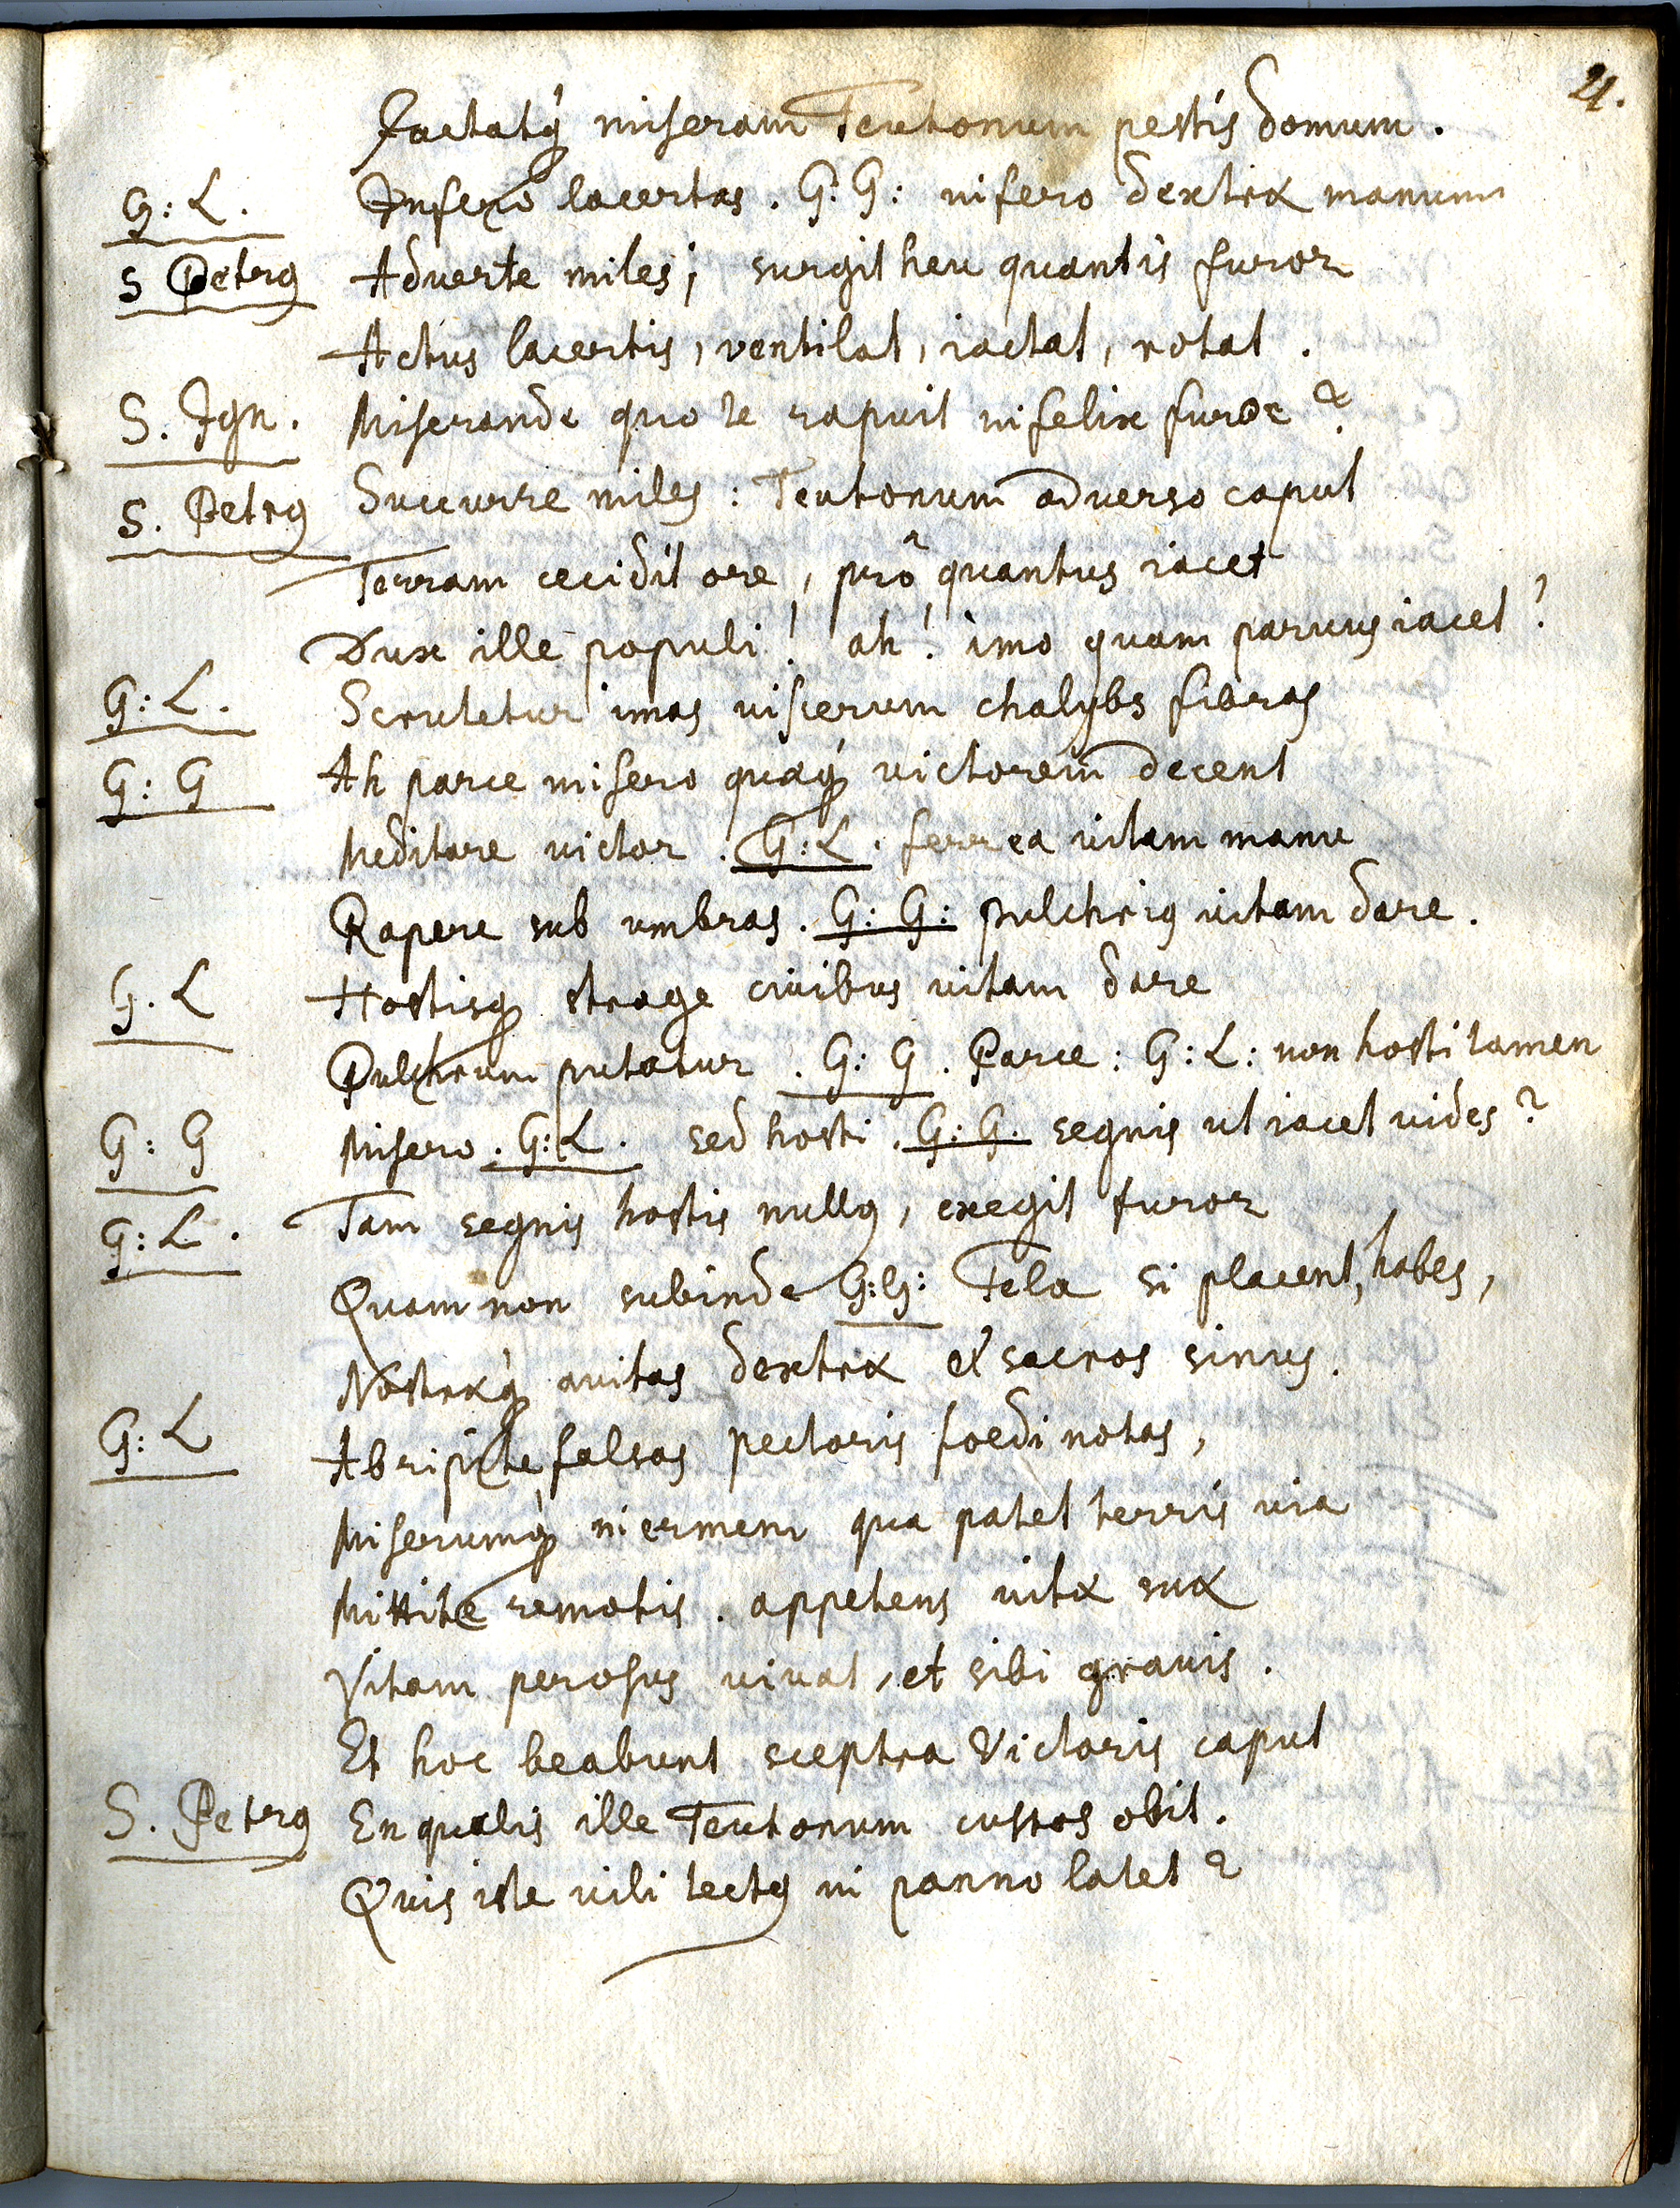 21.
Jactatq́ miseram Teutonum pestis domum.
G: L. Insero lacertas. G: G: insero dextræ manum
S Petrꝰ Aduerte miles; surgit heu quantis furor
Actus lacertis, ventilat, iactat, rotat.
S. Ign. Miserande quo te rapuit infelix furor?
S. Petrꝰ Succurre miles: Teutonum aduerso caput
Terram cecidit ore, prô quantus iacet
Dux ille populi! ah! imo quam paruus iacet?
G: L. Scrutetur imas viscerum chalybs fibras
G: G Ah parce misero quæq́ victorem decent
Meditare victor. G: L. ferrea vitam manu
Rapere sub umbras. G: G: pulchriꝰ vitam dare.
G. L Hostisq́ strage ciuibus vitam dare
Pulchrum putatur. G: G. Parce: G: L: non hosti tamen
G: G Misero. G: L. sed hosti. G: G. segnis ut iacet vides?
G: L. Tam segnis hostis nullꝰ, exegit furor
Quam non subinde G: G: Tela si placent, habes,
Nostræq́ auitas dextræ et sacros sinus.
G: L Abripite falsas pectoris foedi notas,
Miserumq́ inermem qua patet terris via
Mittite remotis. appetens vitæ suæ
Vitam perosus viuat, et sibi grauis.
Et hoc beabunt sceptra Victoris caput
S. Petrꝰ En qualis ille Teutonum custos obit.
Quis iste vili tectꝰ in panno latet?